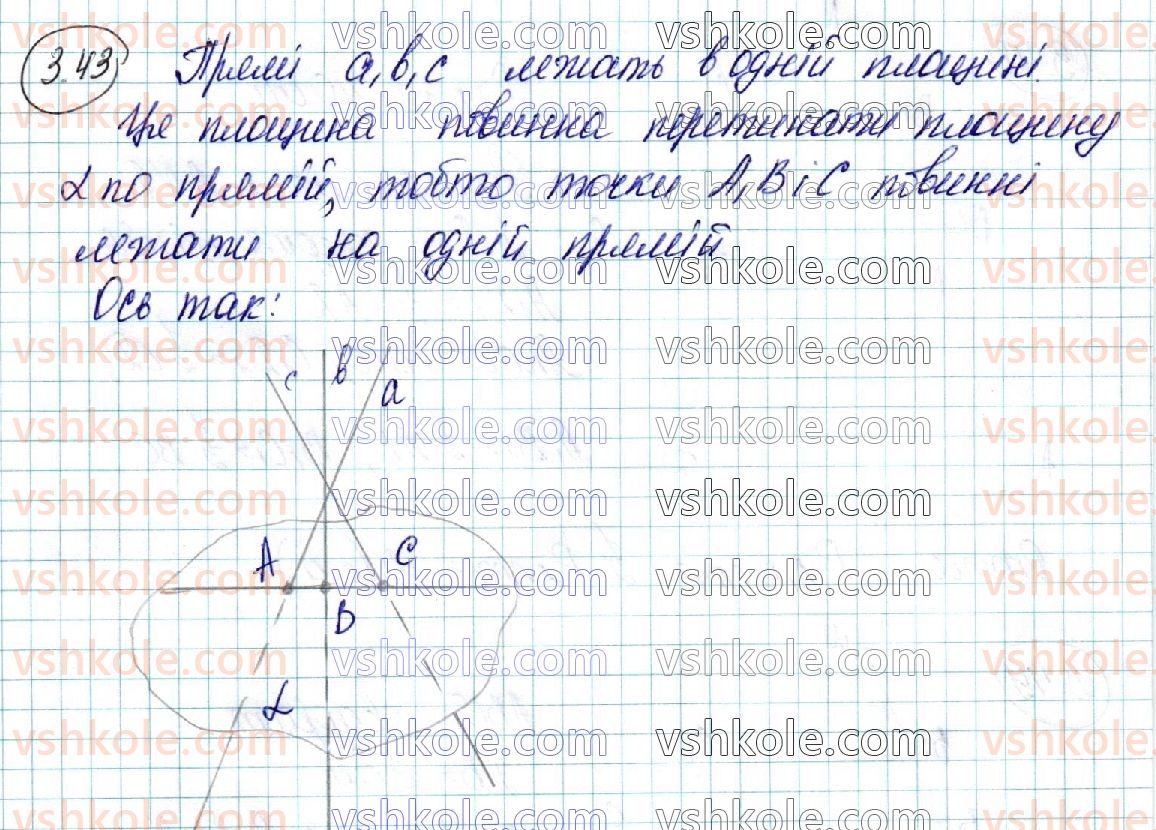 3.43 Прямі a, b, c лежать в одній площині.
Ця площина повинна перетинати площину
α по прямій, тобто точки A, B і C повинні
лежати на одній прямій
Ось так:
c b a
A C
B
α
vshkole.com